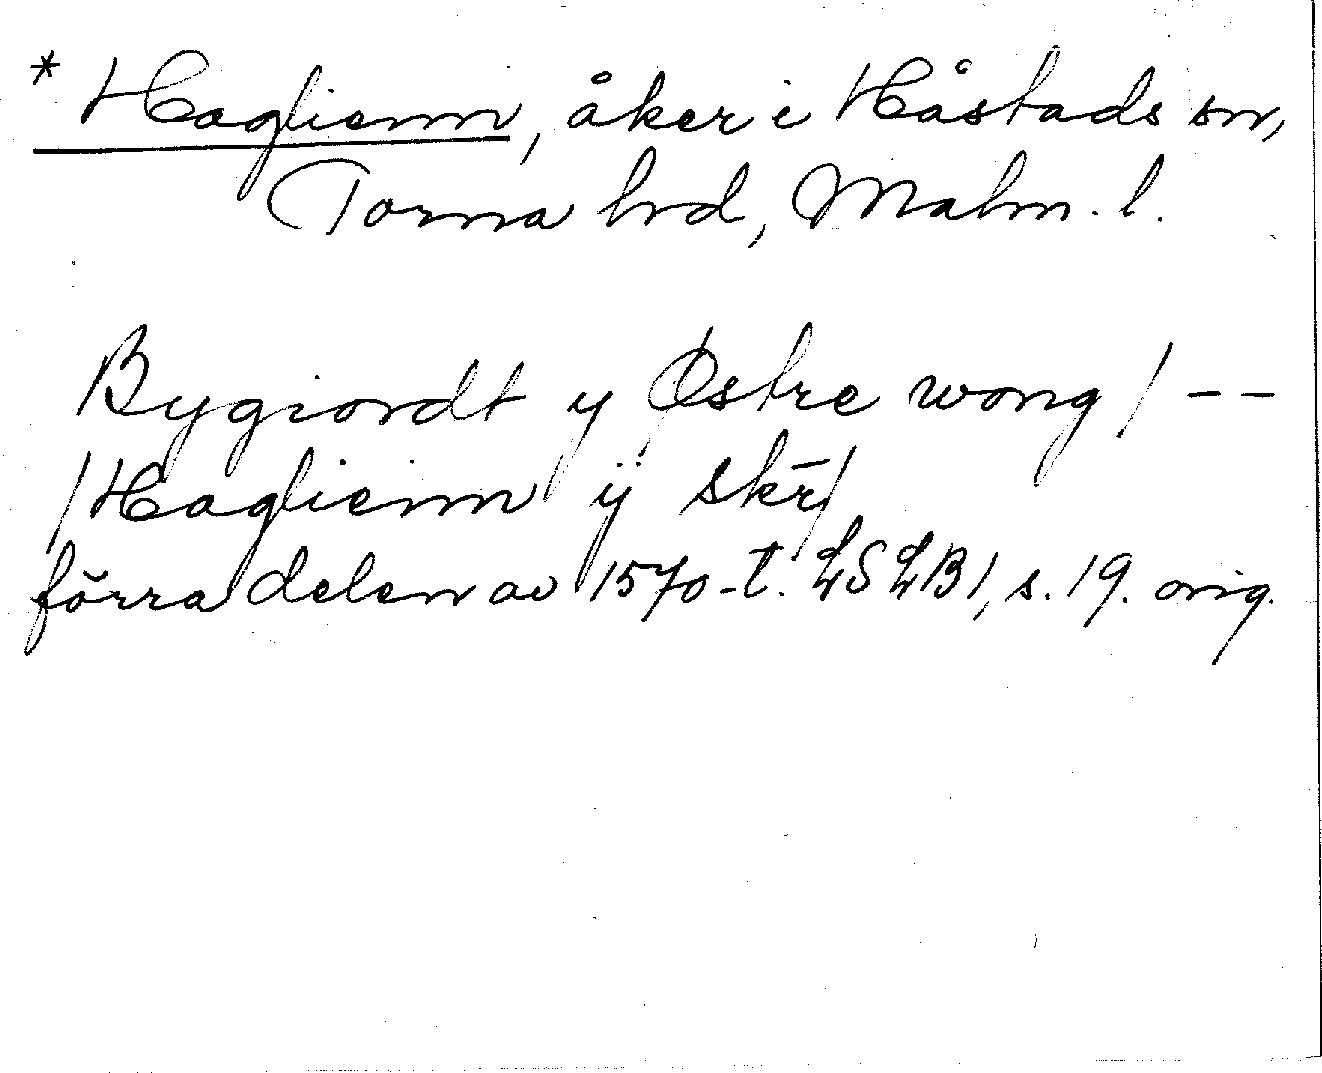 * Haglienn, åker i Håstads sn,
Torna hrd, Malm. l.
Bygiordt y Østre wong / --
/ Haglienn ÿ skr̄ /
förra delen av 1570-t. LSLB1, s. 19. orig.